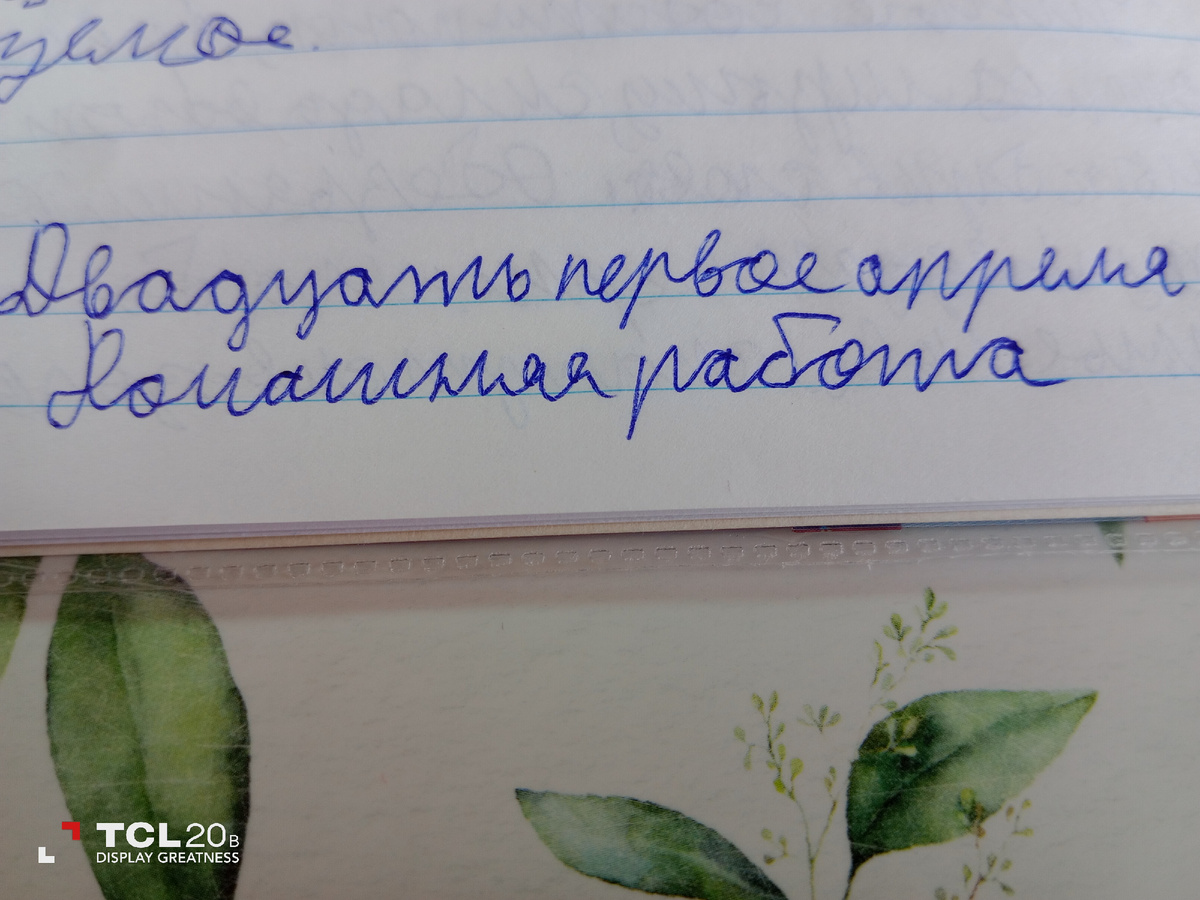 уемое.
Двадцать первое апреля
Домашняя работа
TCL 20B
DISPLAY GREATNESS